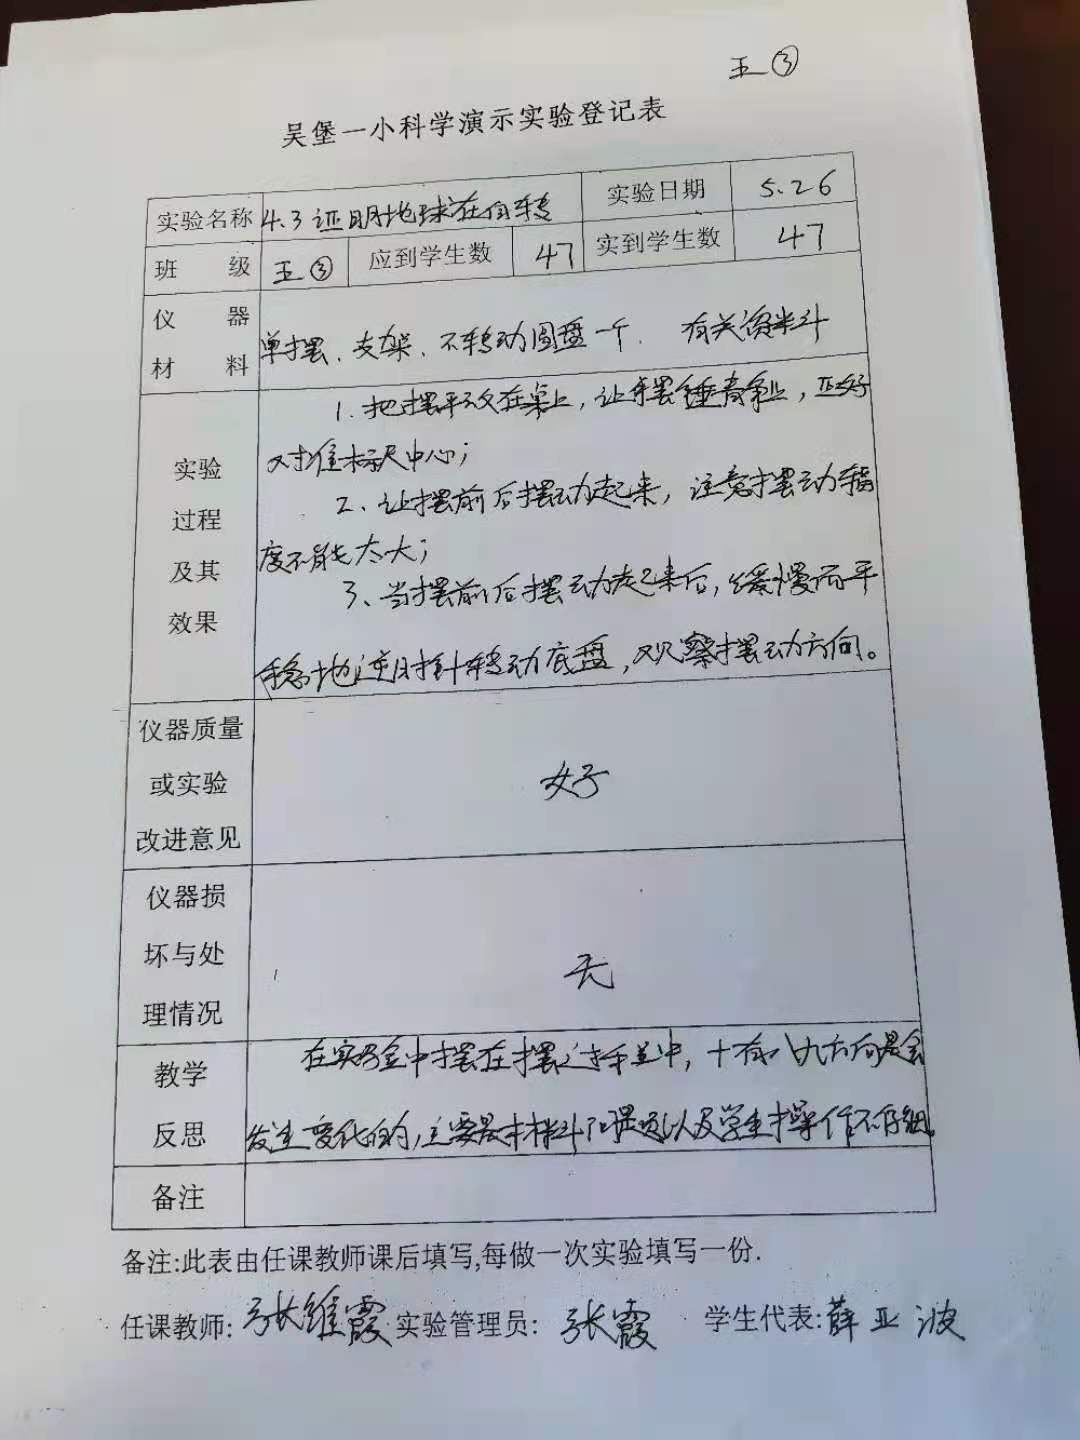 五③
吴堡一小科学演示实验登记表
实验名称 4.3证明地球在自转 实验日期 5.26
班级 五③ 应到学生数 47 实到学生数 47
仪器
材料
单摆、支架、不转动圆盘一个、有关资料
实验
过程
及其
效果
1、把摆平放在桌上，让摆锤静止，正好
对准标尺中心；
2、让摆前后摆动起来，注意摆动幅
度不能太大；
3、当摆前后摆动起来后，缓慢而平
稳地逆时针转动底盘，观察摆动方向。
仪器质量
或实验
改进意见
好
仪器损
坏与处
理情况
无
教学
反思
在实验中摆在摆过程中，十有八九方向是会
发生变化的，主要是材料问题以及学生操作不仔细。
备注
备注:此表由任课教师课后填写,每做一次实验填写一份.
任课教师: 张维霞 实验管理员: 张霞 学生代表: 薛亚波